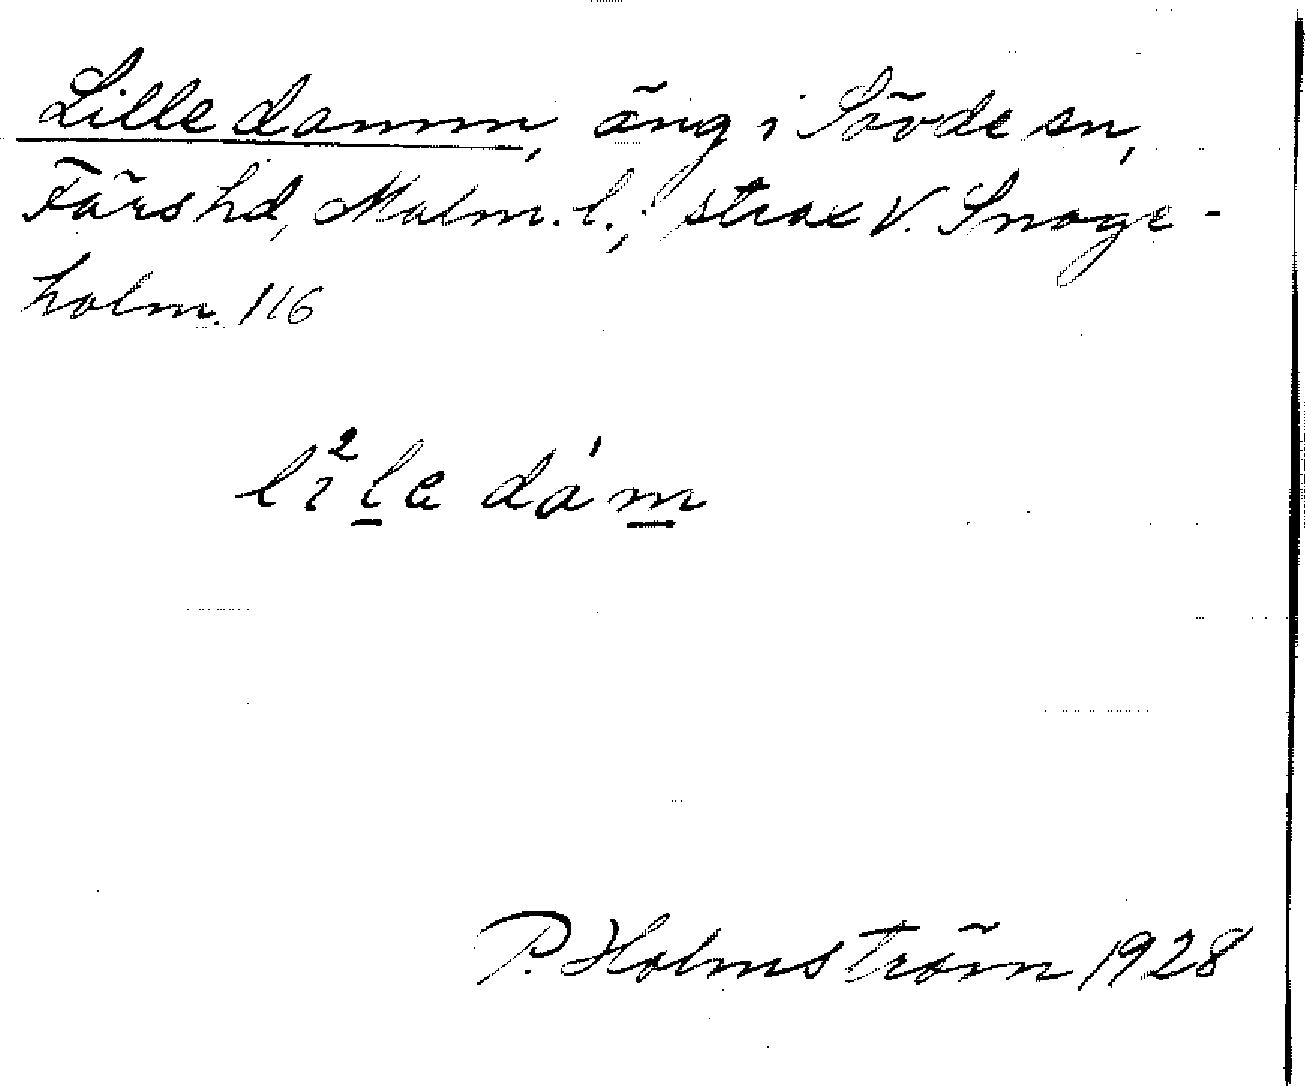 Lille damm, äng i Sövde sn,
Färs hd, Malm. l., strax V. Snoge-
holm. 116
li²le da´m
P. Holmström 1928